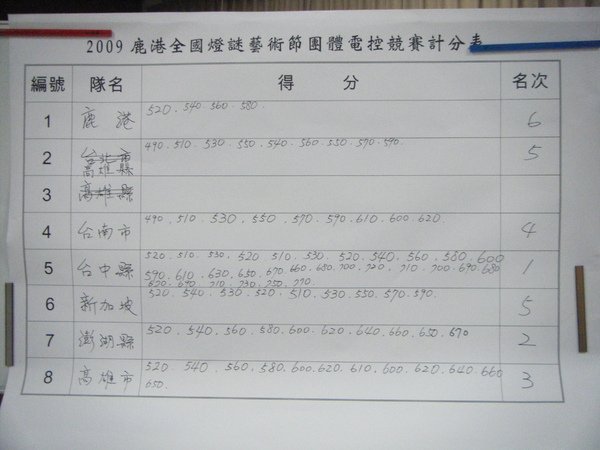 2009 鹿港全國燈謎藝術節團體電控競賽計分表
編號 隊名 得 分 名次
1 鹿港 520. 540. 560. 580. 6
2 台北市 490. 510. 530. 550. 540. 560. 550. 570. 590. 5
高雄縣
3 高雄縣
4 台南市 490. 510. 530. 550. 570. 590. 610. 600. 620. 4
5 台中縣 520. 510. 530. 520 510. 530. 520. 540. 560. 580. 600 1
590. 610. 630. 650. 670 660. 680. 700. 720. 710. 700. 690. 680
6 新加坡 520. 540. 530. 520. 510. 530. 550. 570. 590. 5
7 澎湖縣 520. 540. 560. 580. 600. 620. 640. 660. 650. 670 2
8 高雄市 520. 540. 560. 580. 600. 620. 610. 600. 620. 640. 660 3
650.